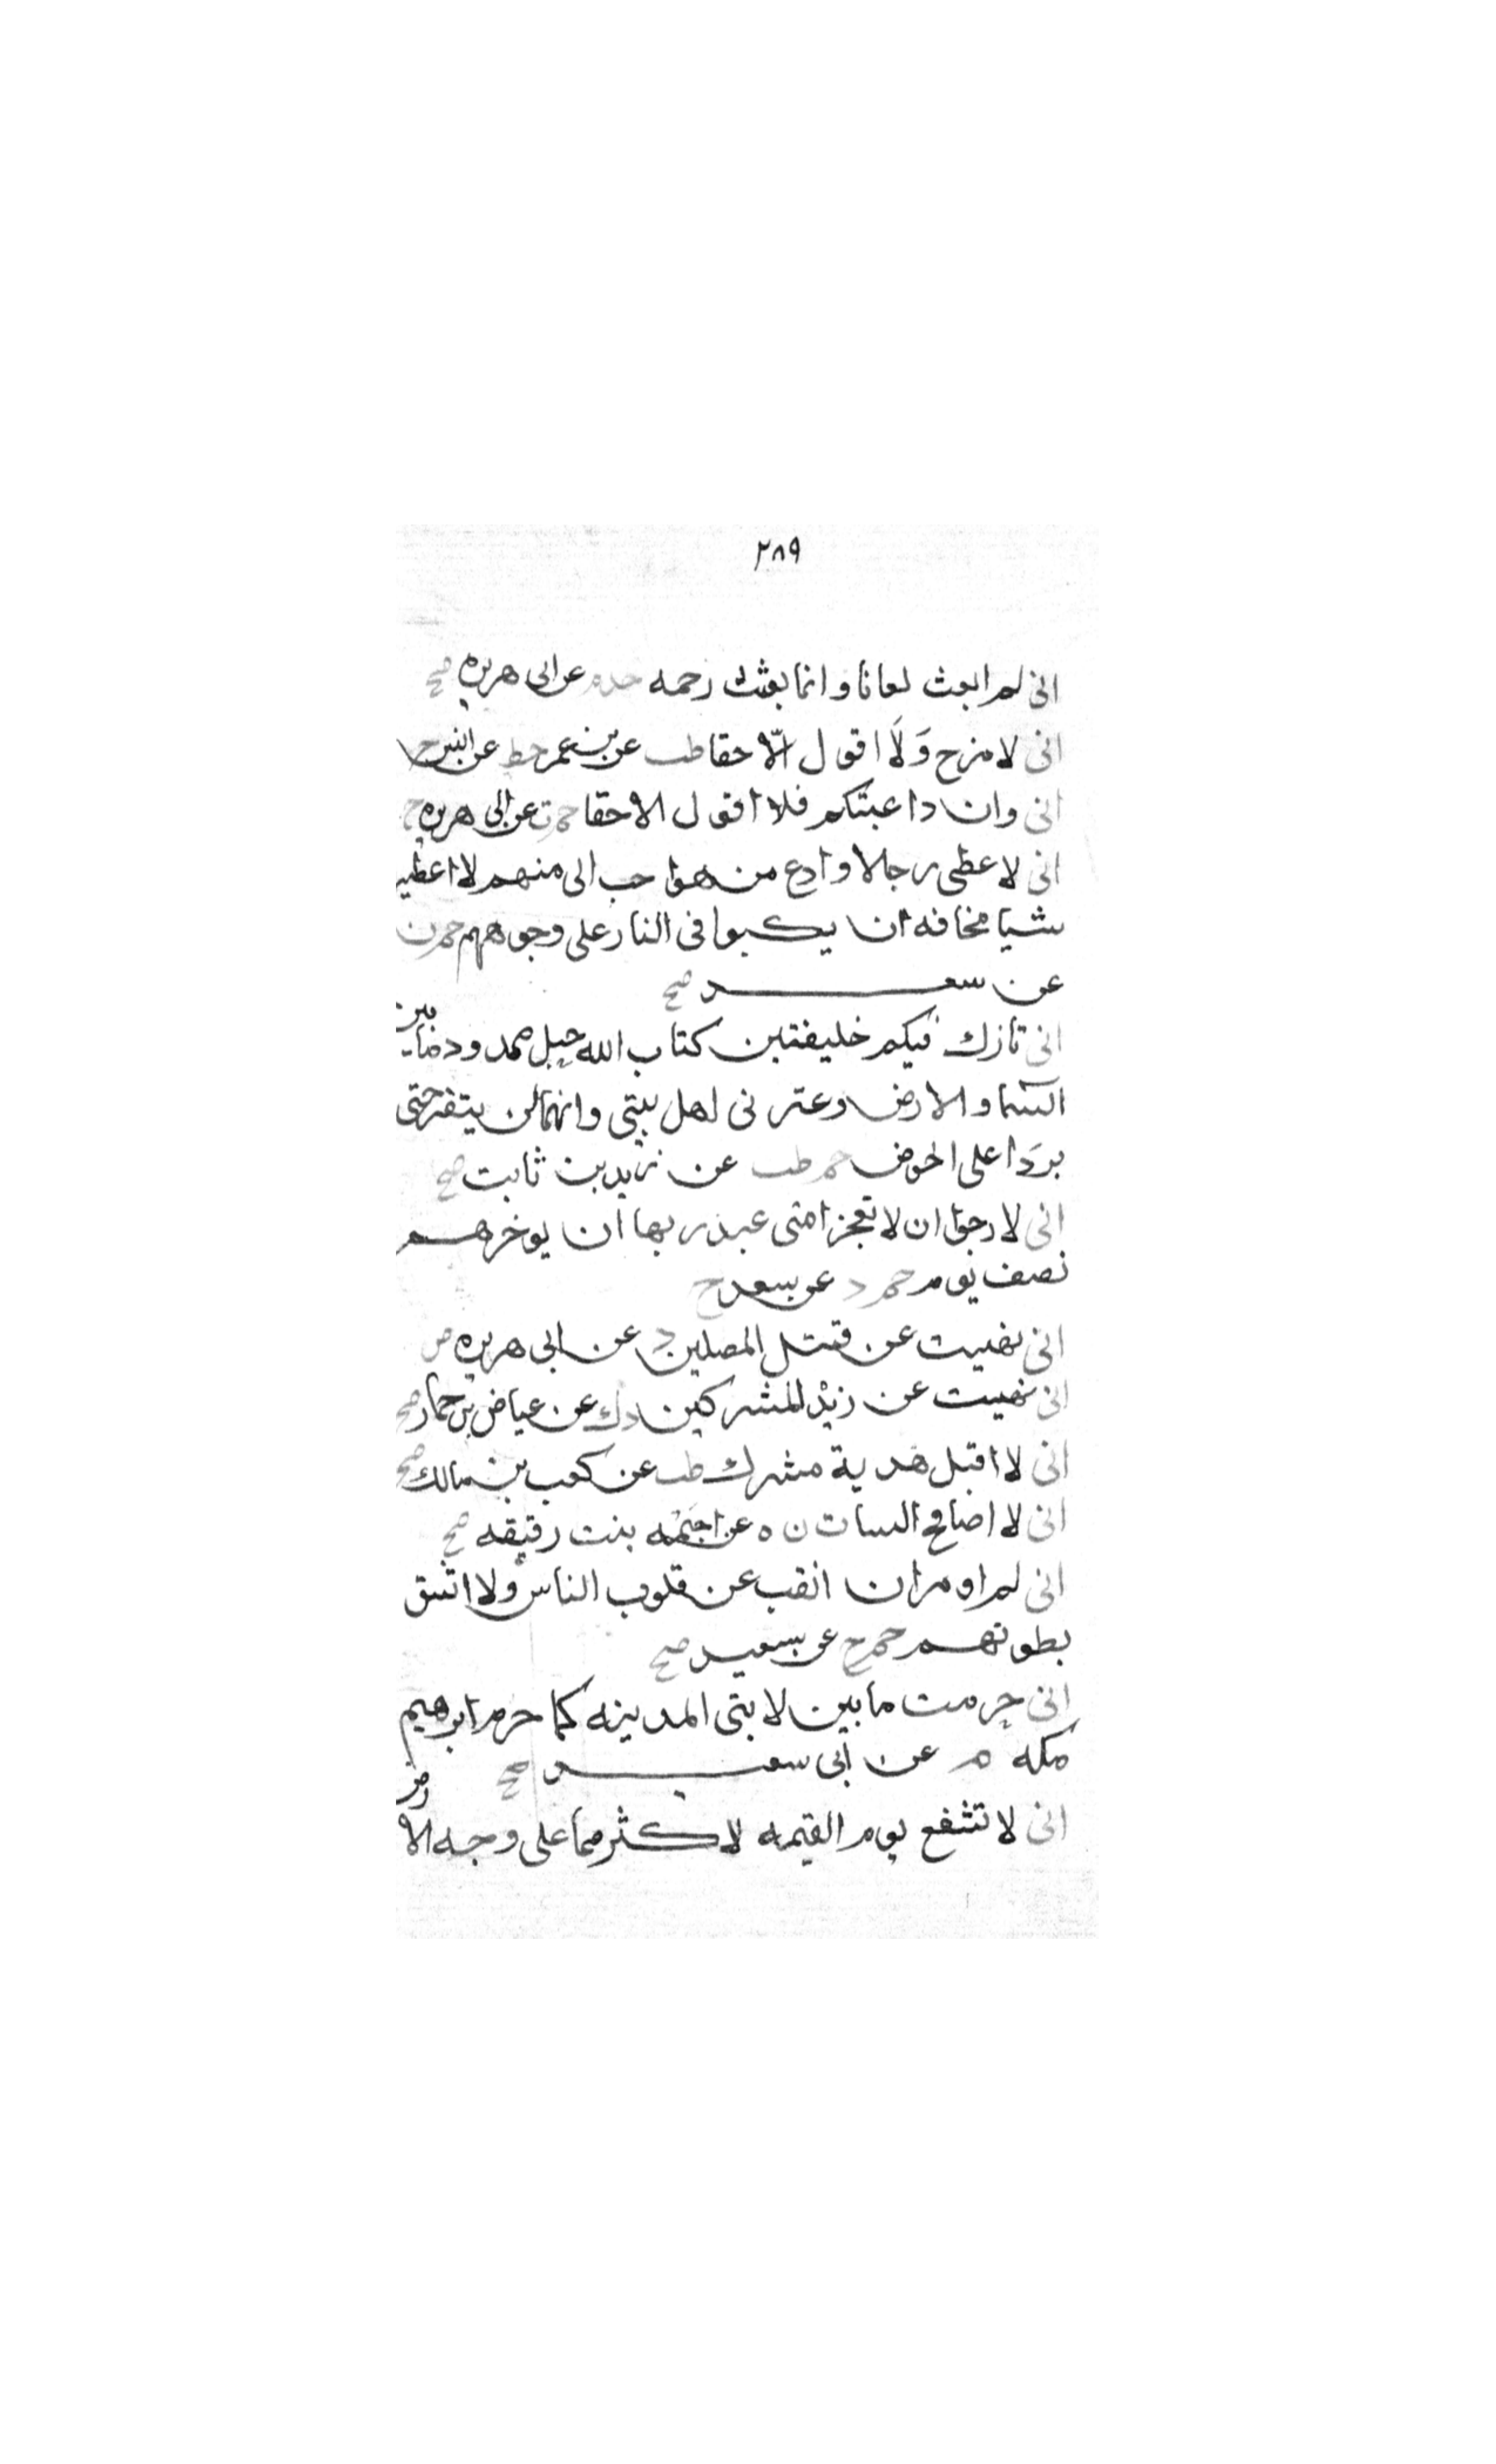 ٢٨٩
انى لم ابعث لعانا وانما بعثت رحمه خدم عن ابى هريره صح
انى لا مزح وَلَا اقول الّا حقا طب عن بن عمر خط عن انس ح
انى وان داعبتكم فلا اقول الا حقا حم ت عن ابى هريره ح
انى لاعطى رجالا وادع من هو احب الى منهم لا اعطيه
شيا مخافه ان يكبوا فى النار على وجوههم حم ن
عن سعد صح
انى تارك فيكم خليفتين كتاب الله حبل ممدود ما بين
السما والارض وعترتى اهل بيتى وانهما لن يتفرقا حتى
يردَا على الحوض حم طب عن زيد بن ثابت صح
انى لا رجوا ان لا تعجز امتى عند ربها ان يوخرهم
نصف يوم حم د عن سعد ح
انى نهيت عن قتل المصلين د عن ابى هريره ض
انى نهيت عن زبْد المشركين د ت عن عياض بن حمار صح
انى لا اقبل هدية مشرك طب عن كعب بن مالك صح
انى لا اصافح النسا ت ن ه عن اميمه بنت رقيقه صح
انى لم اومر ان انقب عن قلوب الناس ولا اشق
بطونهم حم خ عن سعيد صح
انى حرمت ما بين لابتى المدينه كما حرم ابرهيم
مكه م عن ابى سعيد صح
انى لا شفع يوم القيمه لاكثر مما على وجه الارض